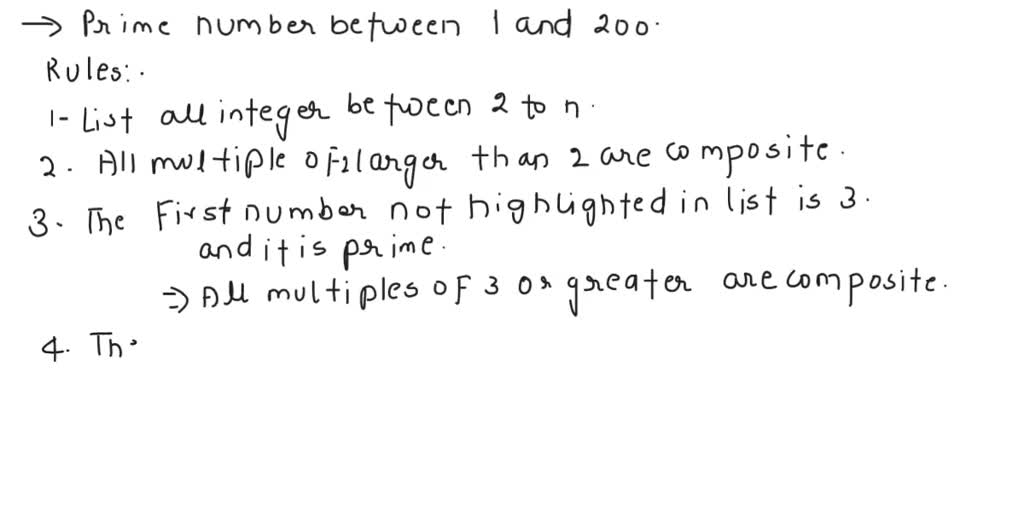 → Prime number between 1 and 200.
Rules:.
1- List all integer between 2 to n.
2. All multiple of 2 larger than 2 are composite.
3. The First number not highlighted in list is 3.
and it is prime.
⇒ All multiples of 3 or greater are composite.
4. Th